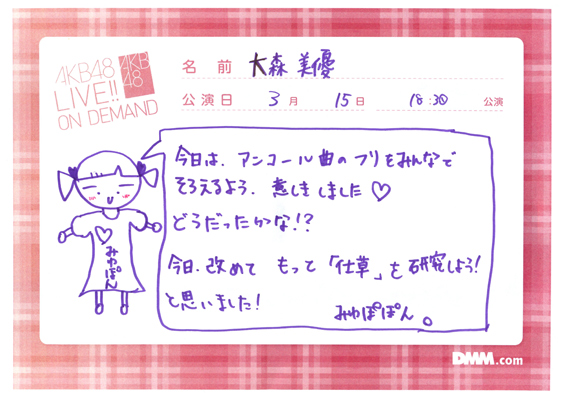 AKB48
LIVE!!
ON DEMAND
AKB
48
名前 大森美優
公演日 3月 15日 18:30 公演
今日は、アンコール曲のフリをみんなで
そろえるよう、意しきしました♡
どうだったかな!?
今日、改めて もっと「仕草」を研究しよう!
と思いました!
みゆぽぽん。
みゆぽん
DMM.com